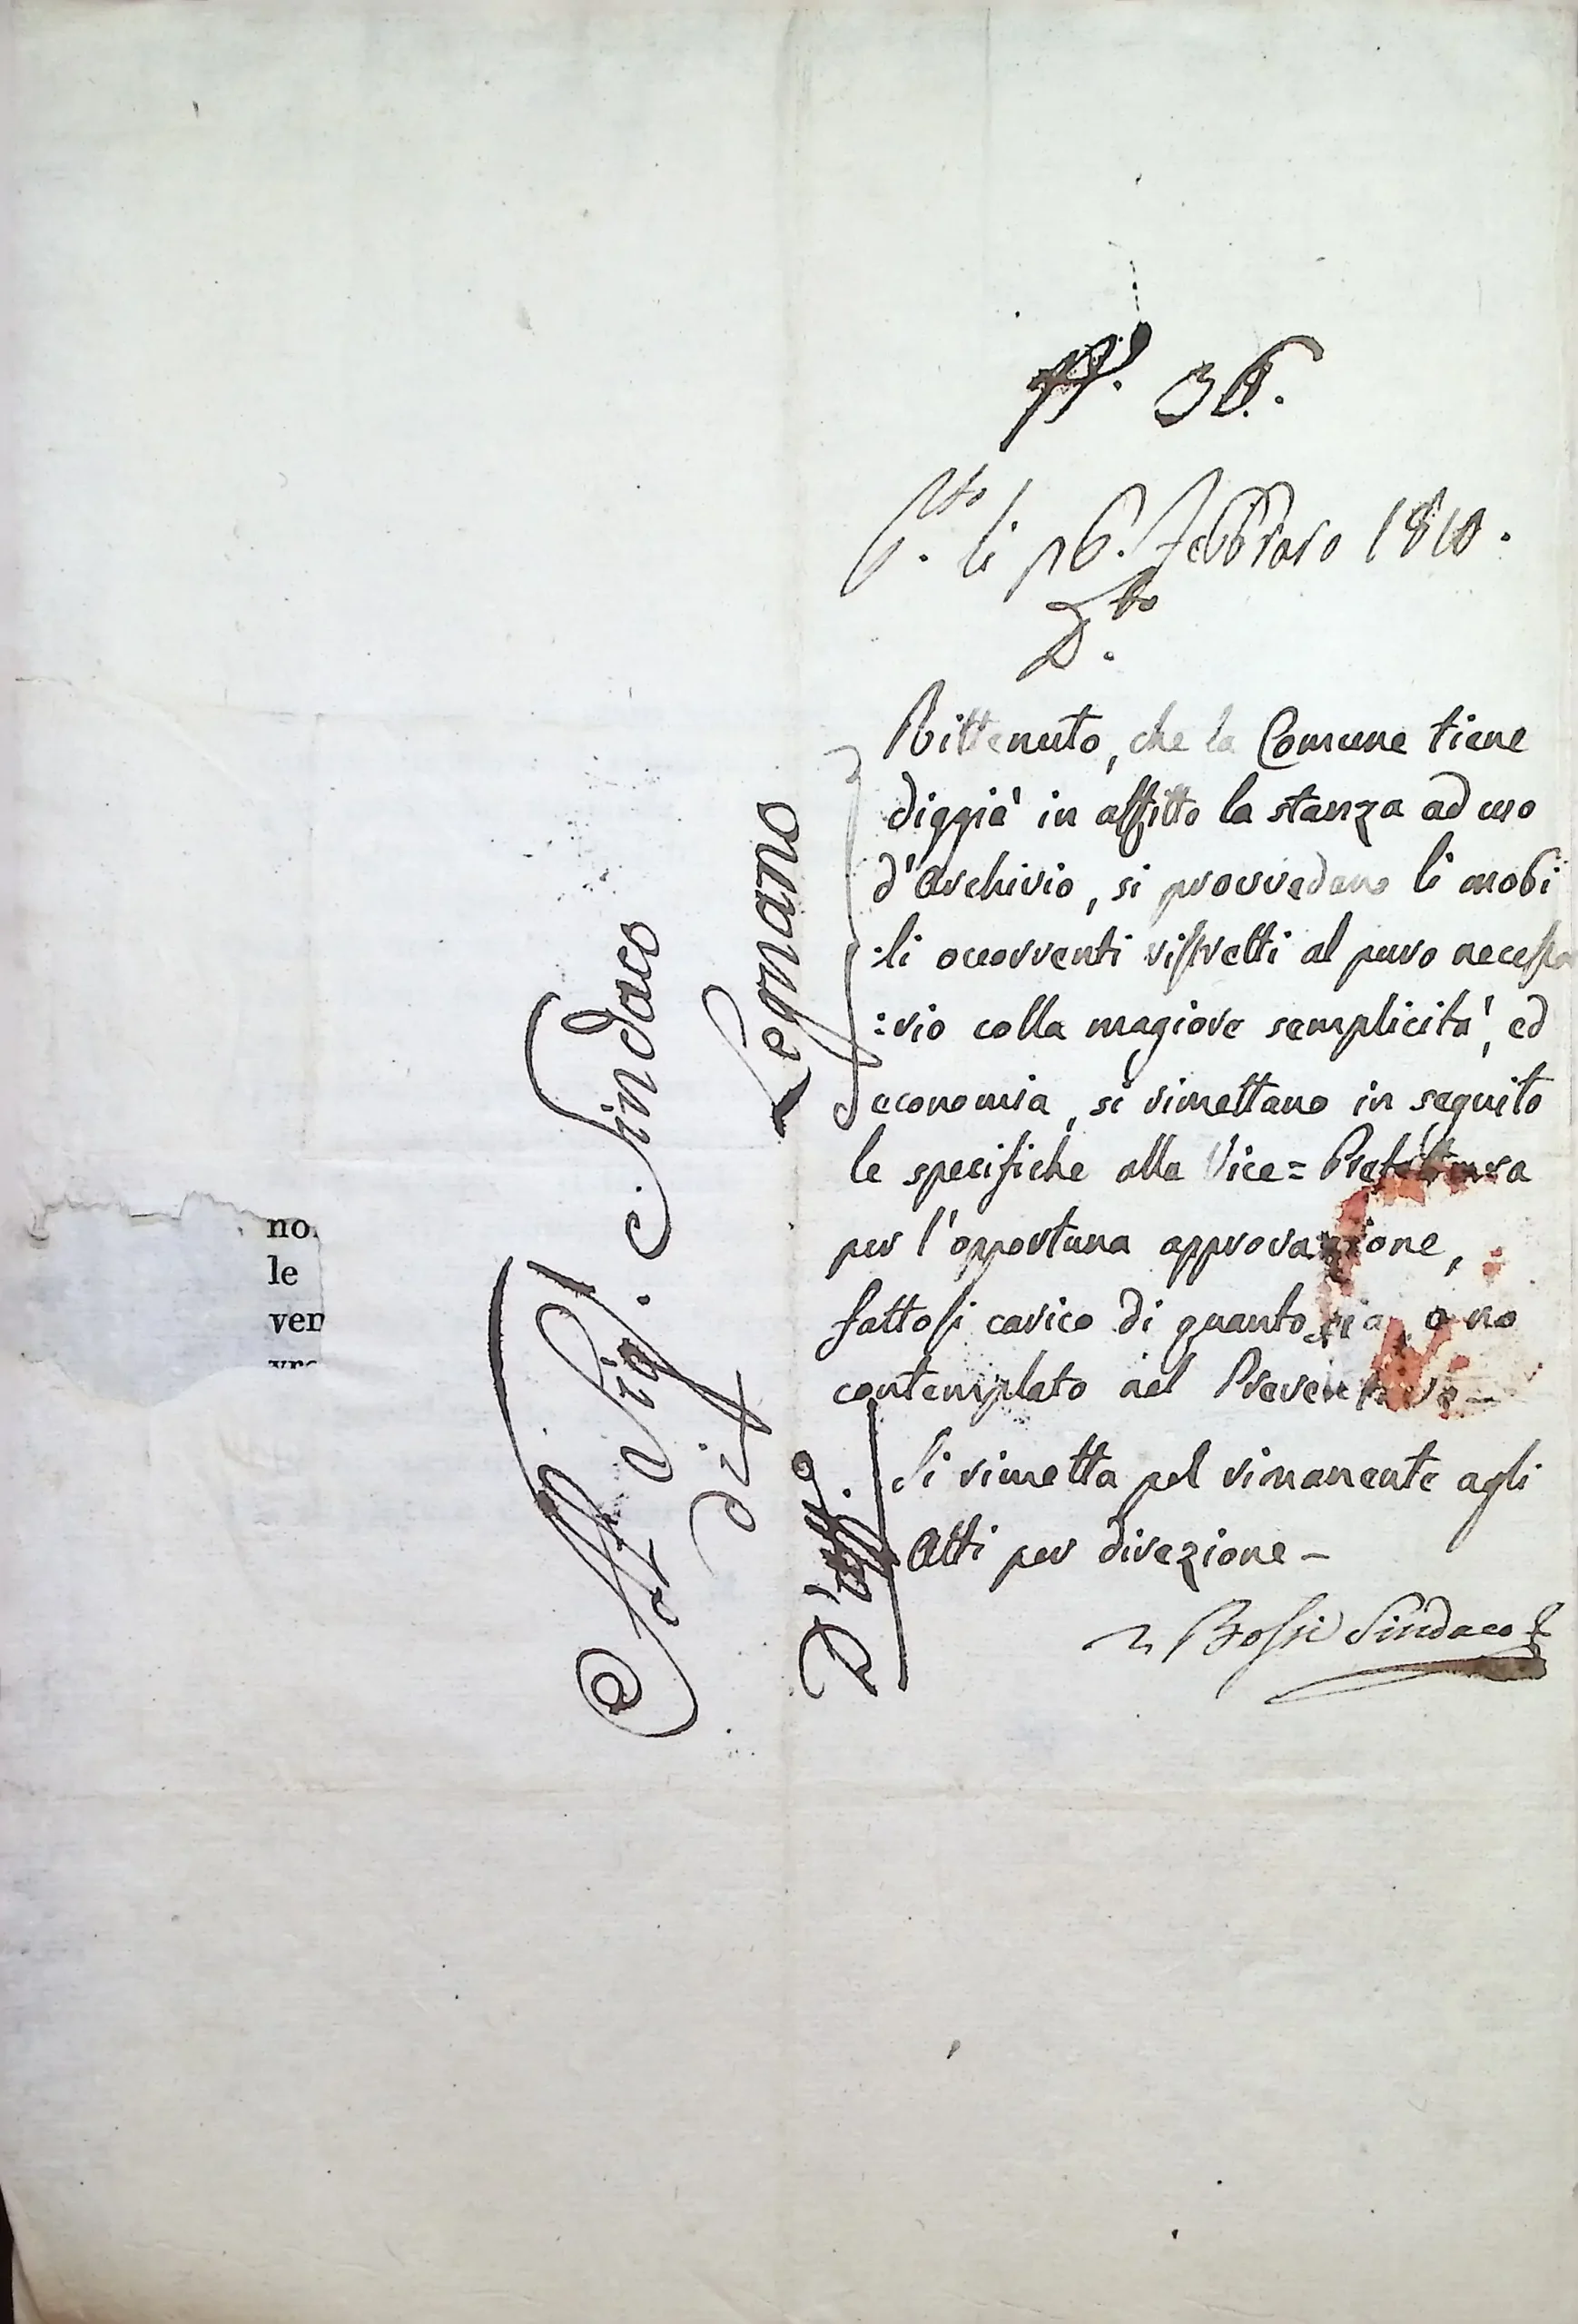 N.° 36.
P.to li 26. Febbraro 1810.
D.to
Rittenuto, che la Comune tiene
diggià in affitto la stanza ad uso
d'Archivio, si provvedano li mobi
:li occorrenti ristretti al puro necessa
:rio colla magiore semplicità, ed
economia, si rimettano in seguito
le specifiche alla Vice= Prefettura
per l'opportuna approvazione,
fattosi carico di quanto sia, o no
contemplato nel Preventivo –
Si rimetta pel rimanente agli
Atti per direzione –
Bossi Sindaco
Al Sig. Sindaco
di Legnano
D'Uff.o
no
le
ven